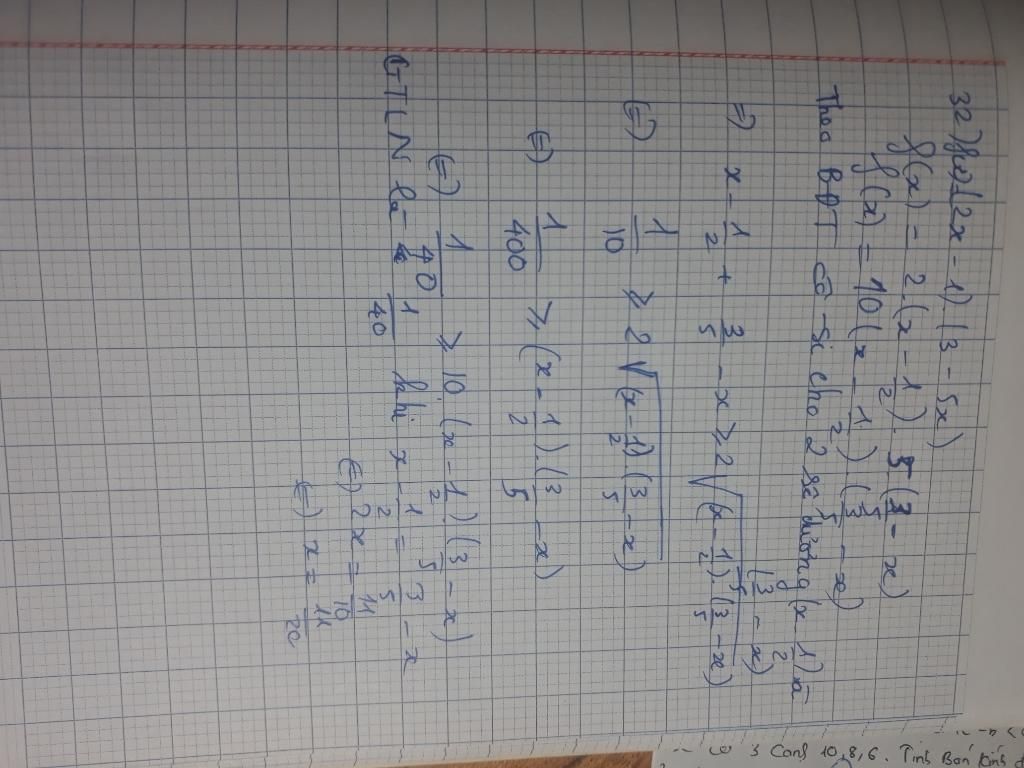 32) f(x) = (2x - 1).(3 - 5x)
f(x) = 2.(x - 1/2).5(3/5 - x)
f(x) = 10(x - 1/2).(3/5 - x)
Theo BĐT cô-si cho 2 số dương (x - 1/2) và
(3/5 - x)
=) x - 1/2 + 3/5 - x ≥ 2√(x - 1/2).(3/5 - x)
(=) 1/10 ≥ 2√(x - 1/2).(3/5 - x)
(=) 1/400 ≥ (x - 1/2).(3/5 - x)
(=) 1/40 ≥ 10.(x - 1/2).(3/5 - x)
GTLN là 1/40 khi x - 1/2 = 3/5 - x
(=) 2x = 11/10
(=) x = 11/20
co 3 cạnh 10,8,6. Tính Bán kính